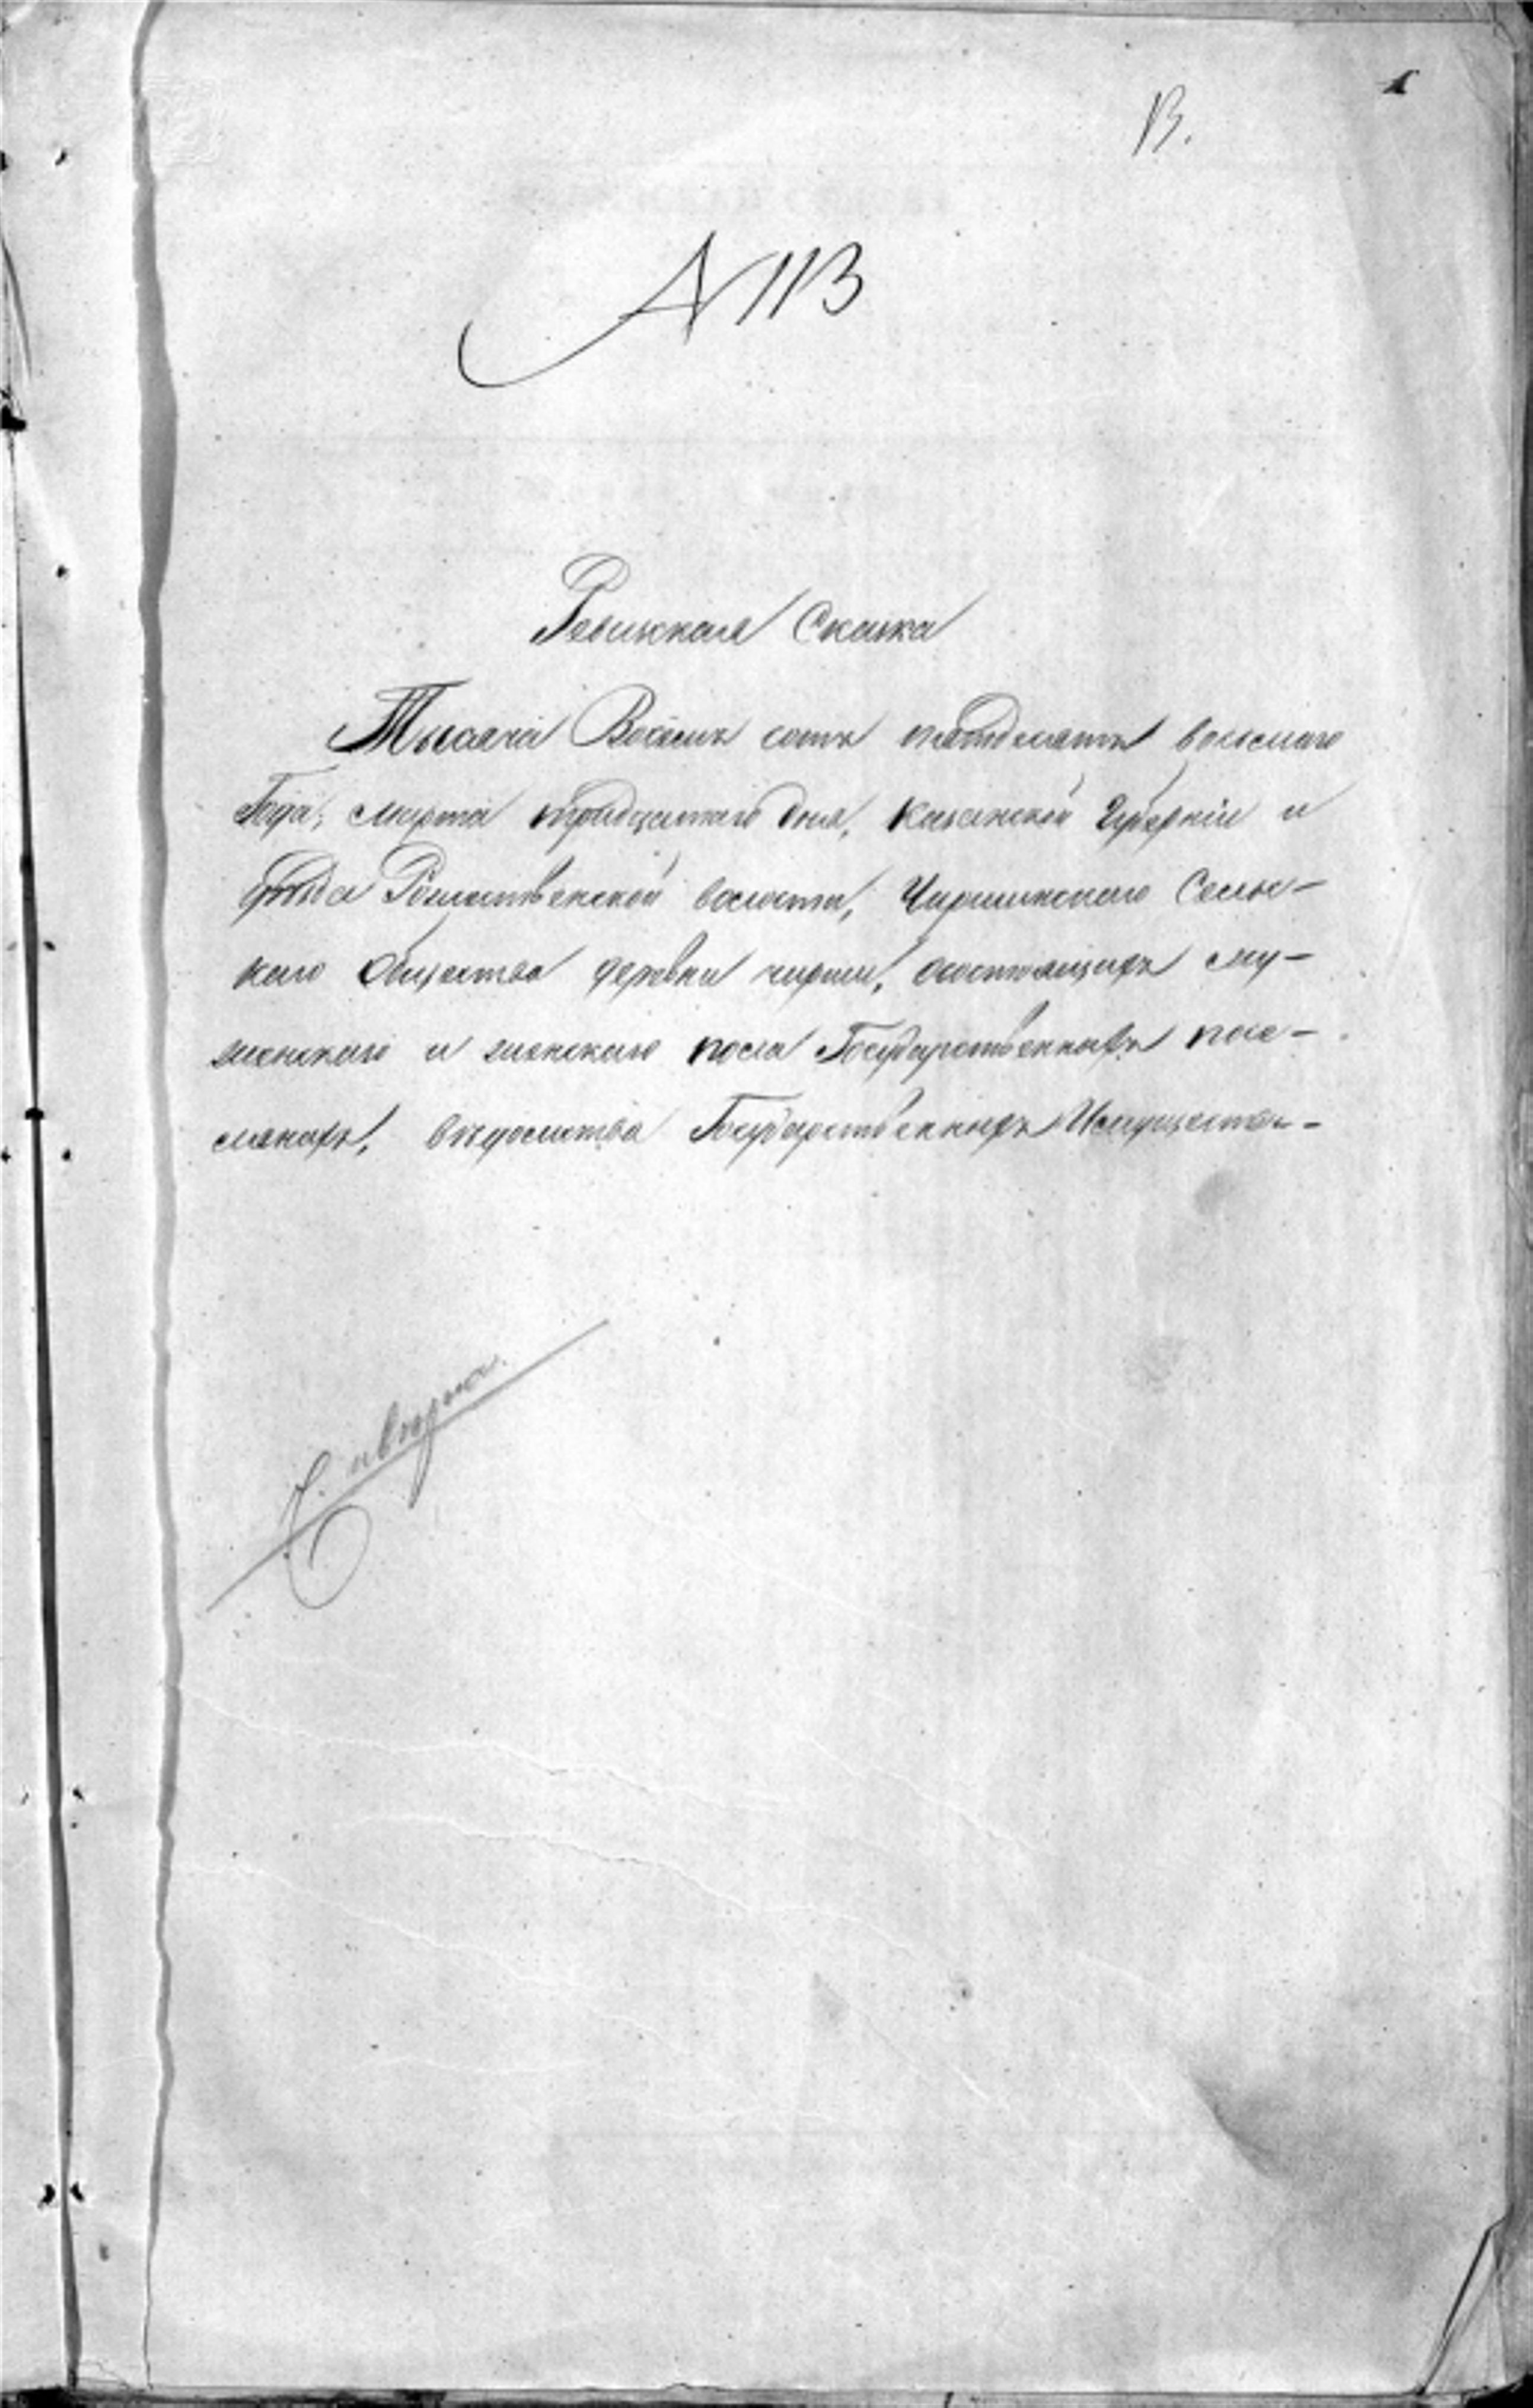 В.
1
№ 113
Ревизская Сказка
Тысяча Восемь сотъ пятьдесятъ восьмаго
Года, марта тридцатаго дня, Казанской Губерніи и
уѣзда Рождественской волости, Чиршинскаго Сельс-
каго Общества деревни чирши, о состоящихъ му-
женскаго и женскаго пола Государственныхъ посе-
лянахъ, вѣдомства Государственныхъ Имуществъ-